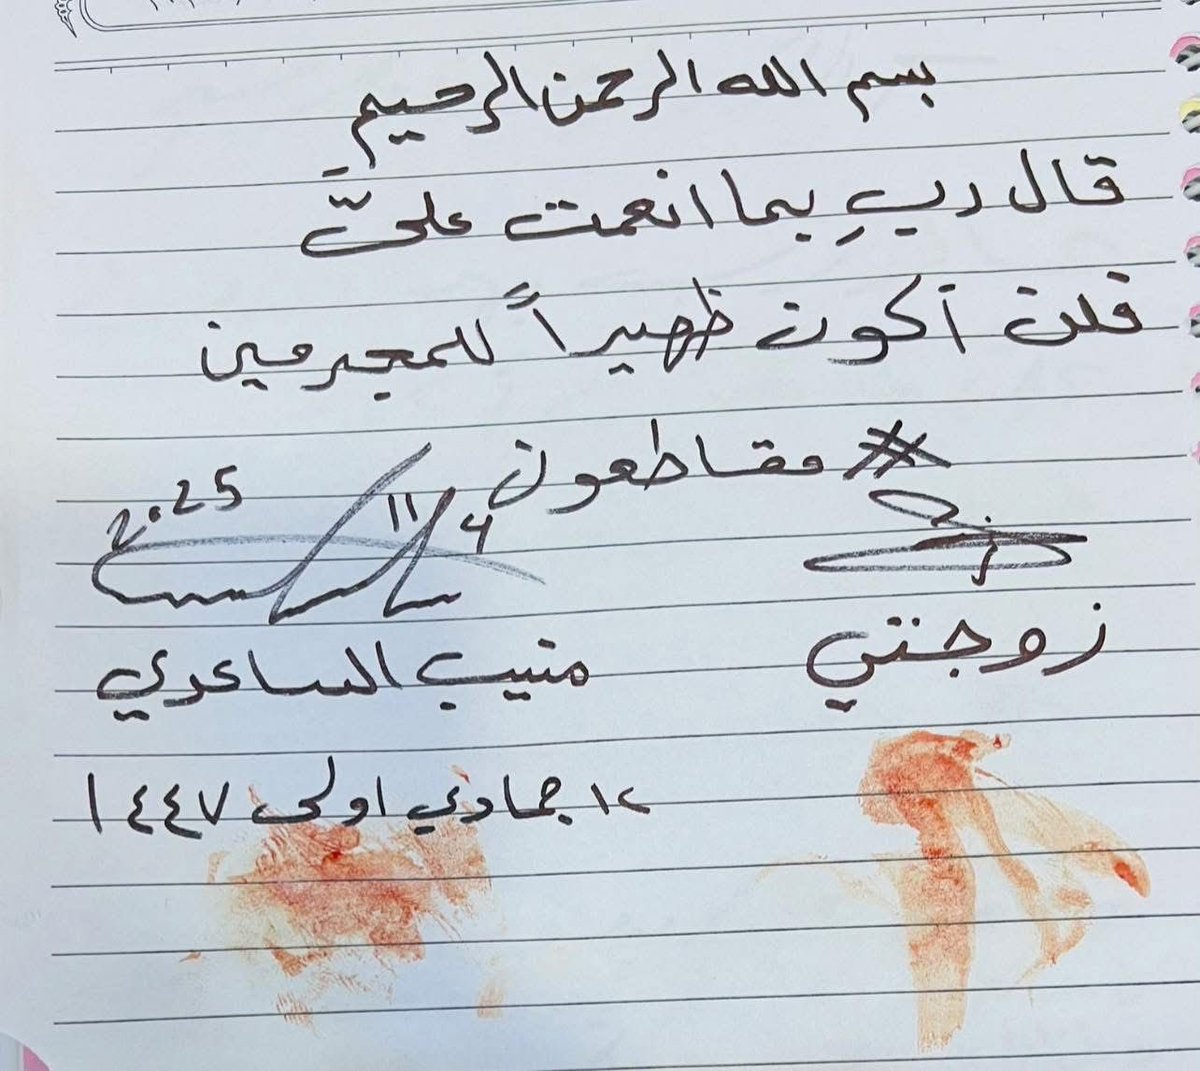 بسم الله الرحمن الرحيم
قال ربِ بما انعمت عليّ
فلن أكون ظهيراً للمجرمين
# مقاطعون
4/11/2025
زوجتي
منيب الساعدي
١٢ جمادي اولى ١٤٤٧